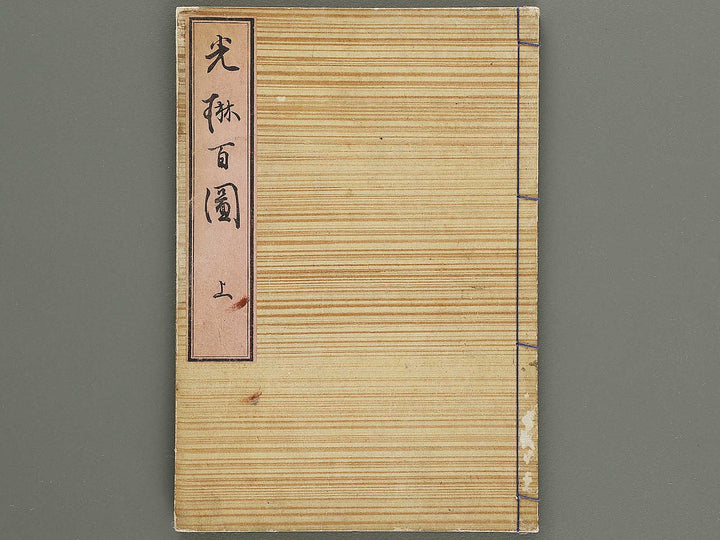 光琳百圖 上